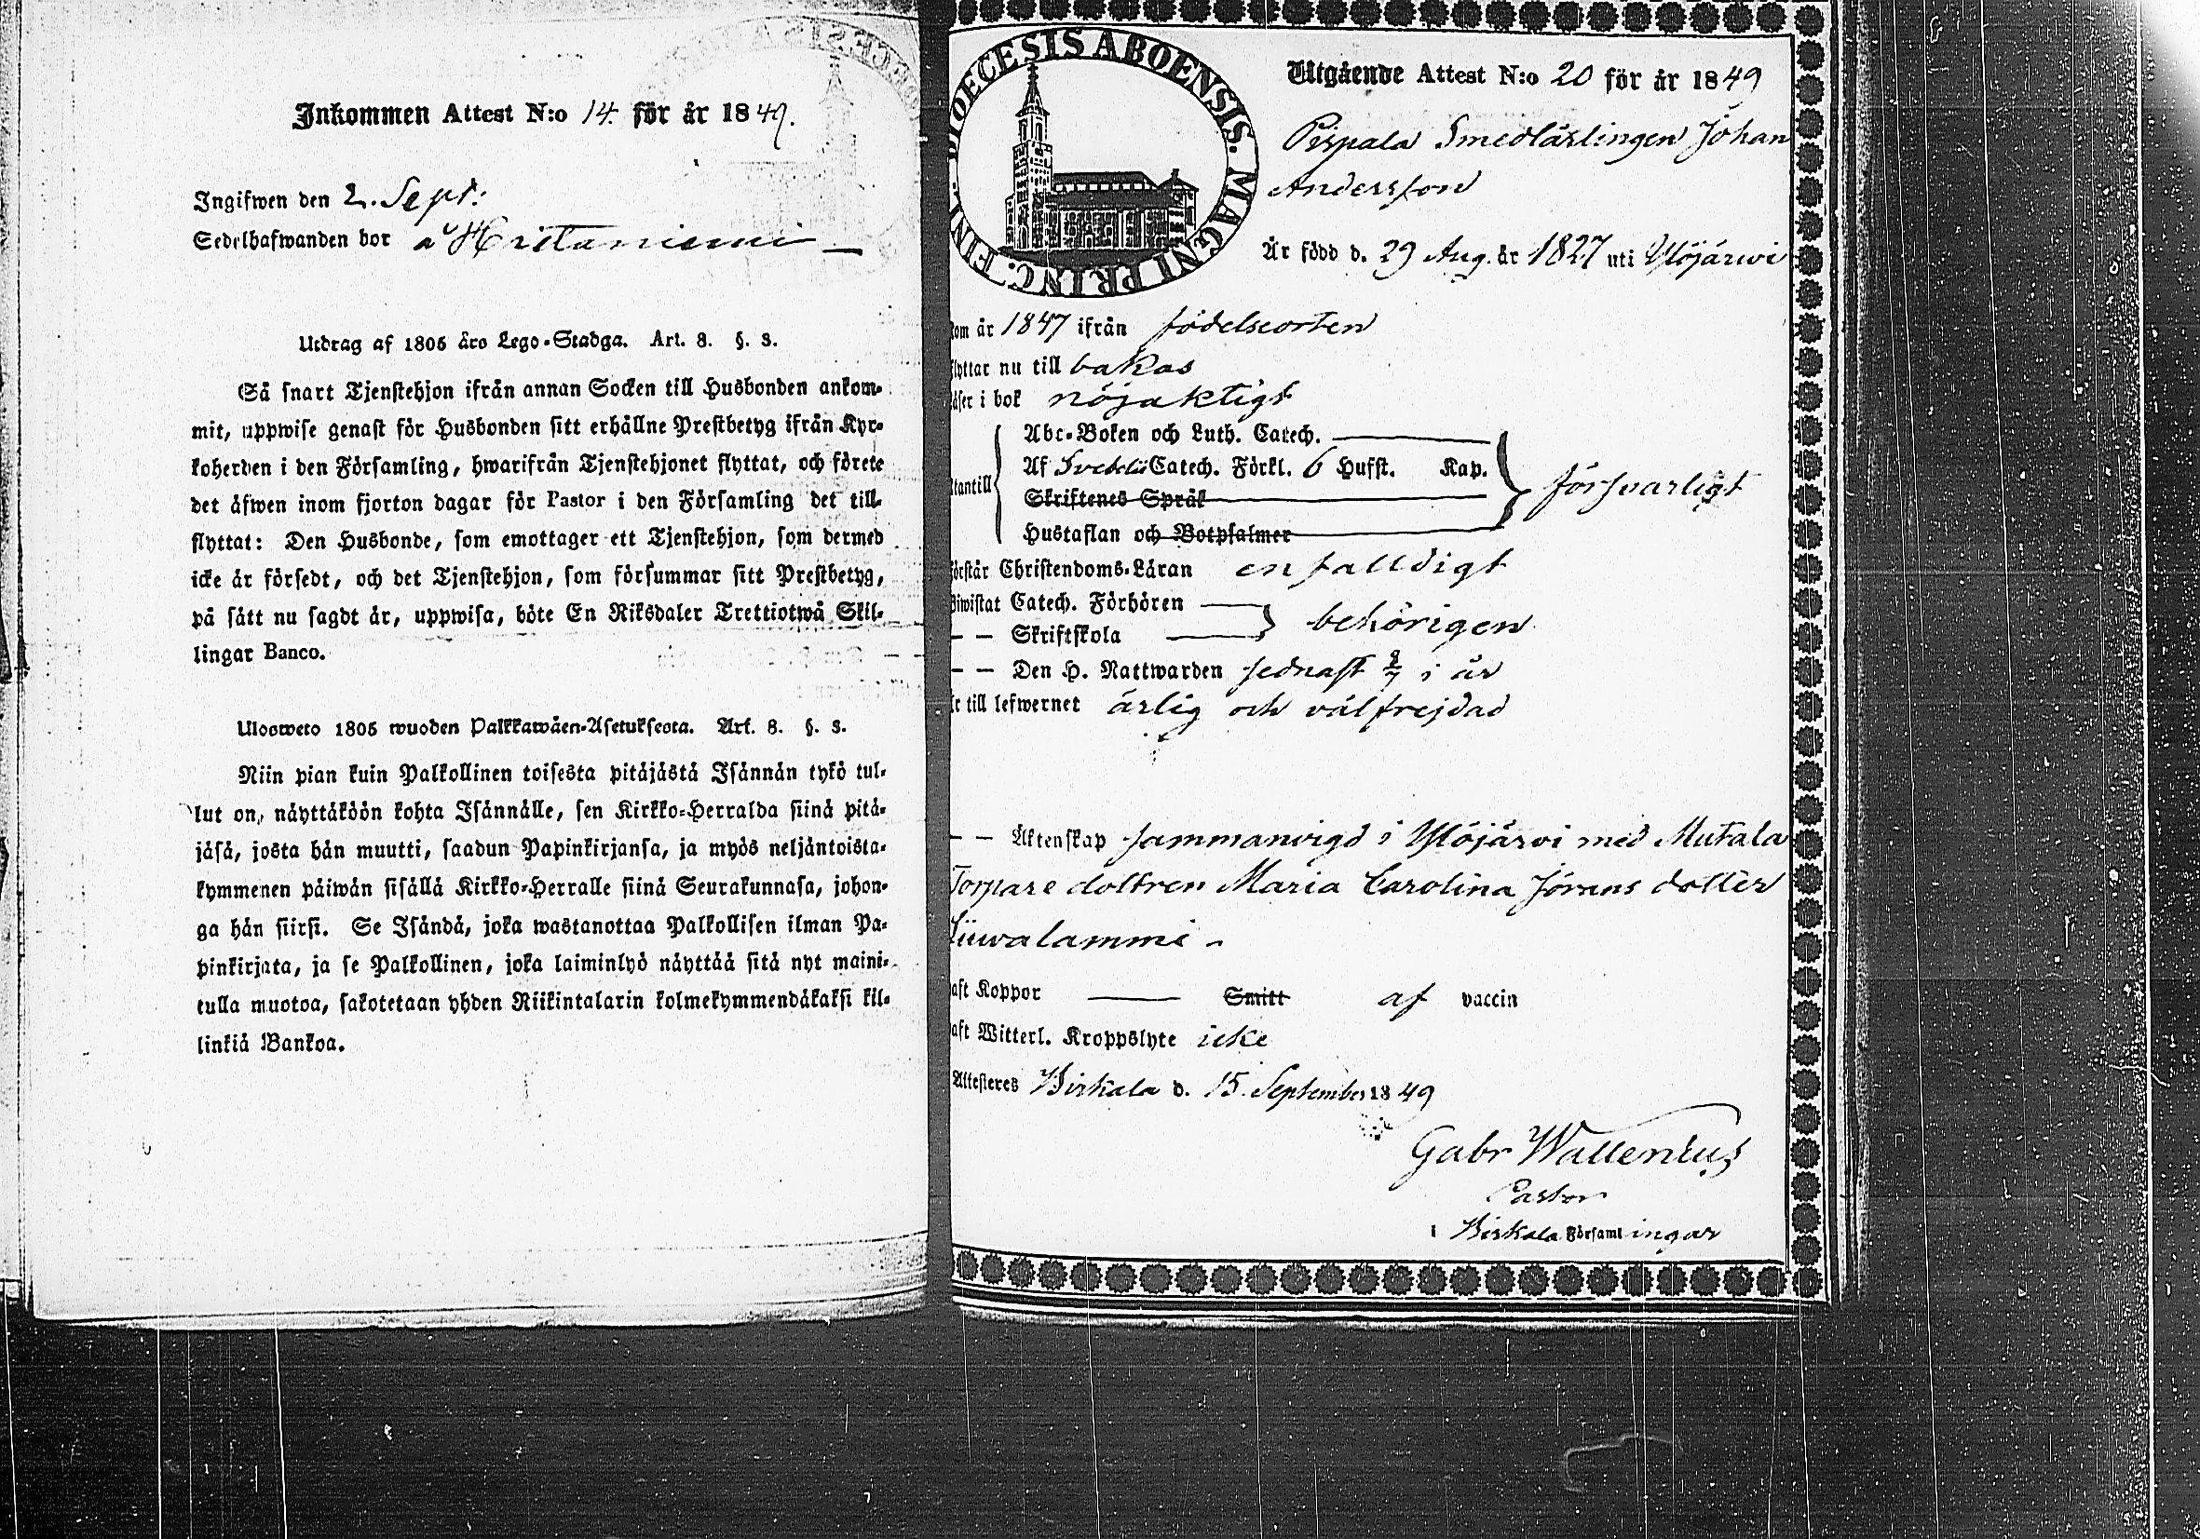 Inkommen Attest N:o 14. för år 1849.
Ingifwen den 2. Sept:
Sedelhafwanden bor å Hritaniemi
Utdrag af 1805 års Lego-Stadga. Art. 8. §. 3.
Så snart Tjenstehjon ifrån annan Socken till Husbonden ankom-
mit, uppwise genast för Husbonden sitt erhållne Prestbetyg ifrån Kyr-
koherden i den Församling, hwarifrån Tjenstehjonet flyttat, och förete
det äfwen inom fjorton dagar för Pastor i den Församling det till-
flyttat: Den Husbonde, som emottager ett Tjenstehjon, som dermed
icke är försedt, och det Tjenstehjon, som försummar sitt Prestbetyg,
på sätt nu sagdt är, uppwisa, böte En Riksdaler Trettiotwå Skil-
lingar Banco.
Ulosweto 1805 wuoden Palkkawäen-Asetuksesta. Art. 8. §. 3.
Niin pian kuin Palkollinen toisesta pitäjästä Isännän tykö tul-
lut on, näyttäköön kohta Isännälle, sen Kirkko-Herralda siinä pitä-
jäsä, josta hän muutti, saadun Papinkirjansa, ja myös neljäntoista-
kymmenen päiwän sisällä Kirkko-Herralle siinä Seurakunnasa, johon-
ga hän siirsi. Se Isändä, joka wastanottaa Palkollisen ilman Pa-
pinkirjata, ja se Palkollinen, joka laiminlyö näyttää sitä nyt maini-
tulla muotoa, sakotetaan yhden Riikintalarin kolmekymmendäkaksi kil-
linkiä Bankoa.
DIOECESIS ABOENSIS. MAGNI PRINC. FINL.
Utgående Attest N:o 20 för år 1849
Pispala Smedlärlingen Johan
Andersson
Är född d. 29 Aug. år 1827 uti Ylöjärwi
kom år 1847 ifrån födelseorten
flyttar nu till bakas
läser i bok nöjaktigt
Abc-Boken och Luth. Catech.
Af Svebelii Catech. Förkl. 6 Hufst. Kap.
utantill
försvarligt
Skriftenes Språk
Hustaflan och Botpsalmer
förstår Christendoms-Läran enfalldigt
Biwistat Catech. Förhören
behörigen
— — Skriftskola
— — Den H. Nattwarden sednast 8/7 i år
Är till lefwernet ärlig och välfrejdad
— — Äktenskap sammanvigd i Ylöjärvi med Mutala
Torpare dottren Maria Carolina Jörans dotter
Liuvalammi
haft Koppor — Smitt af vaccin
haft Witterl. Kroppslyte icke
Attesteres Birkala d. 15. September 1849
Gabr Wallenius
Pastor
i Birkala Församlingar